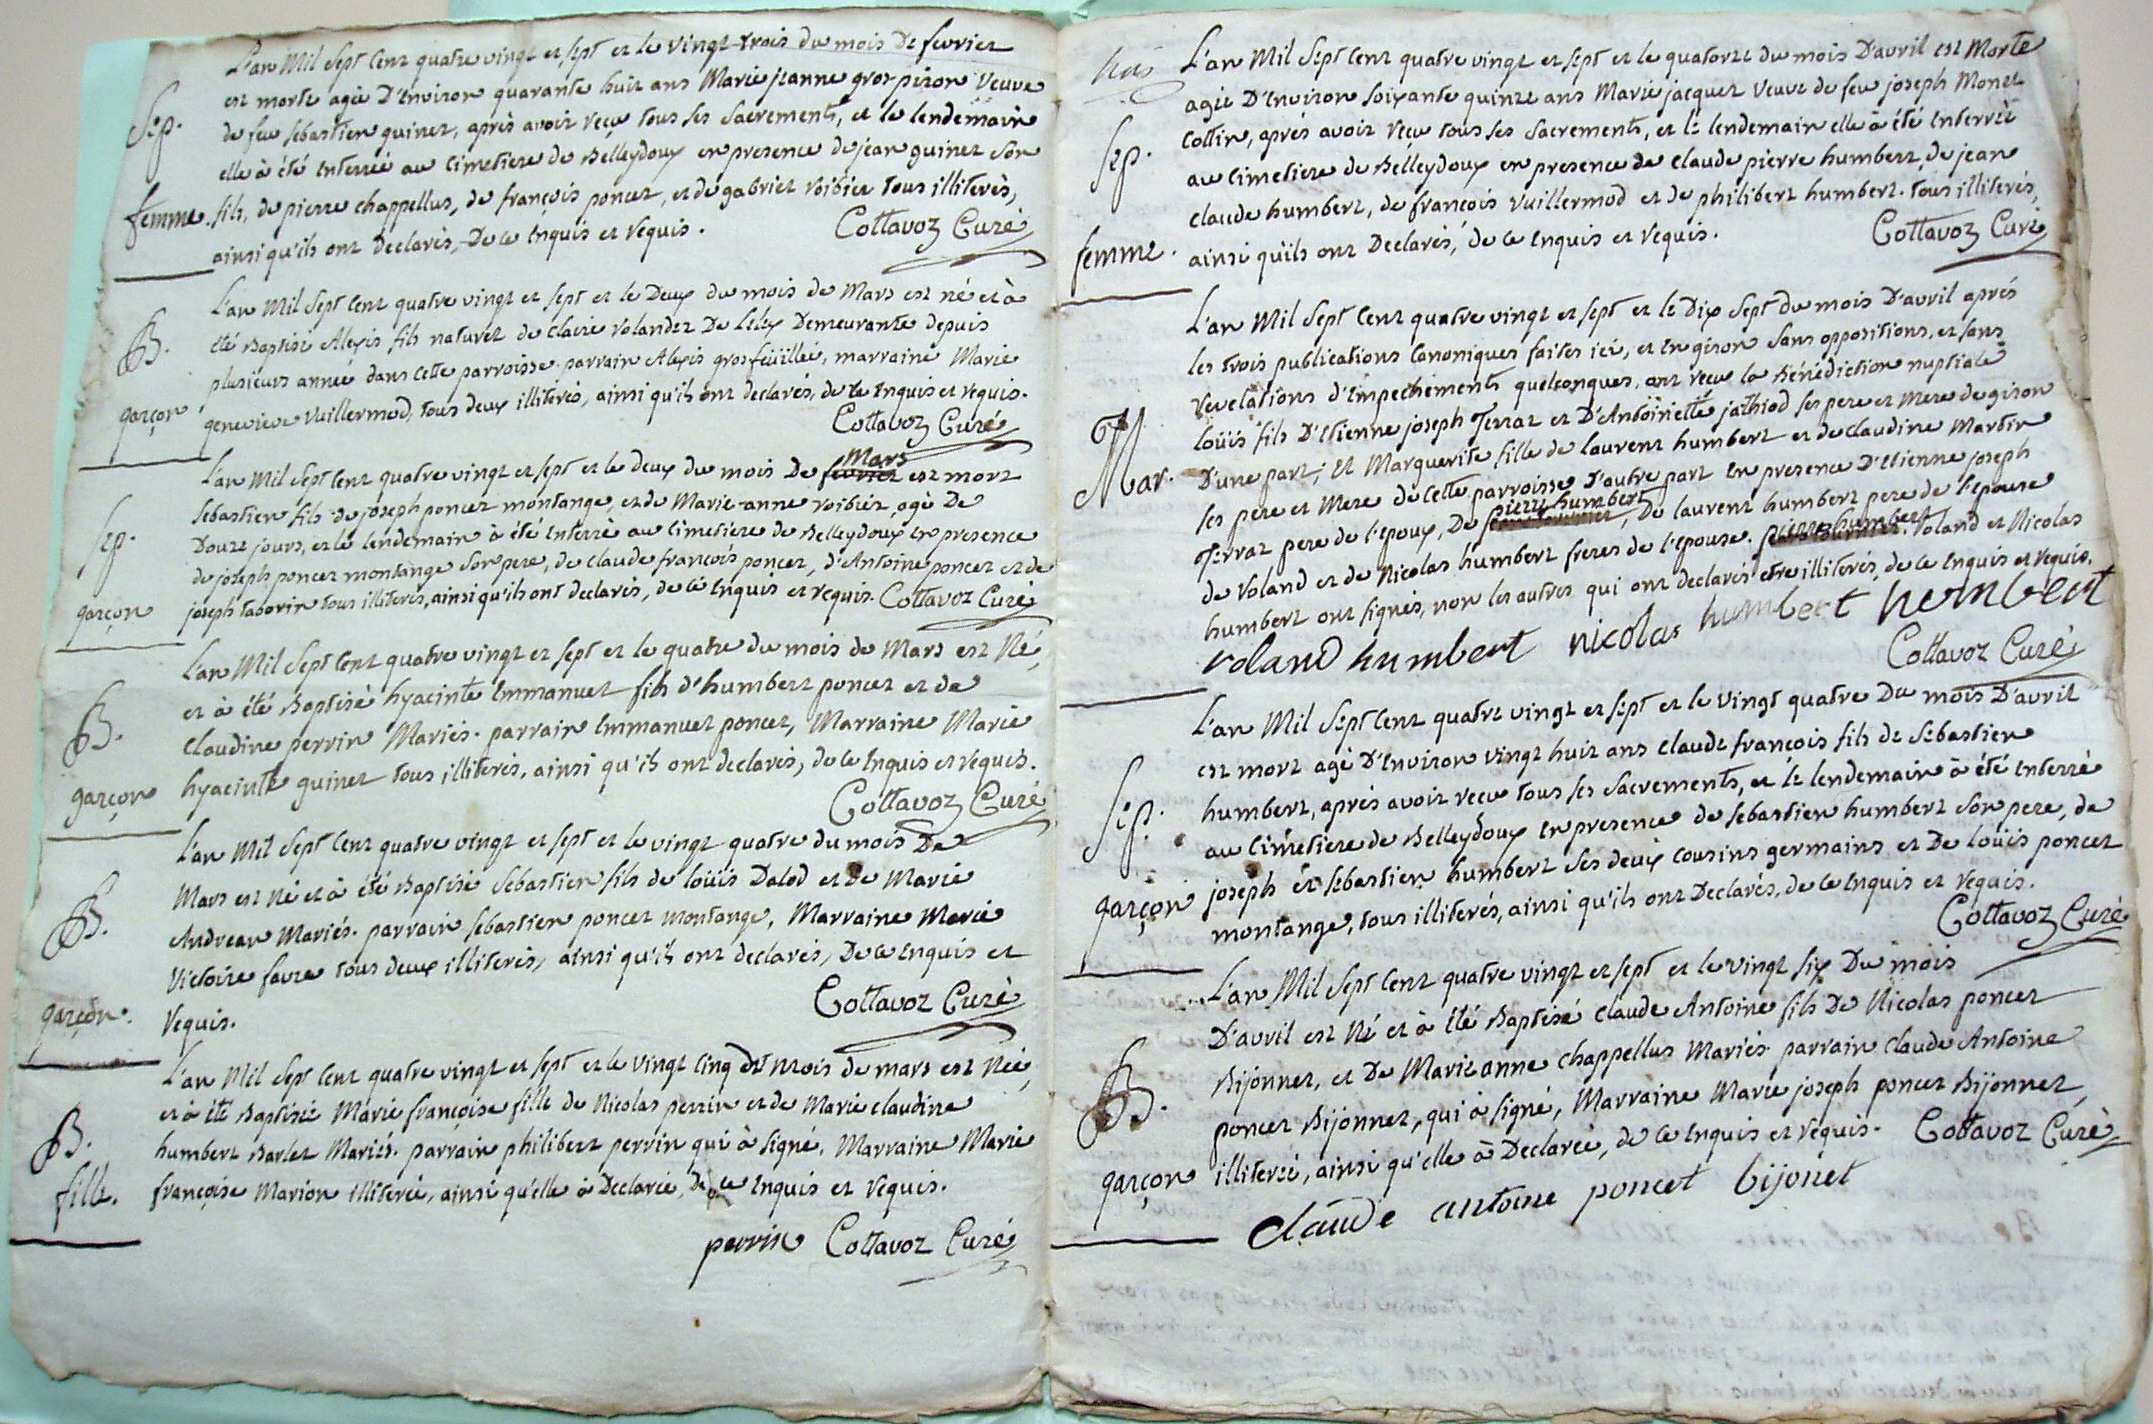 L'an Mil Sept Cent quatre vingt et sept et le vingt trois du mois de fevrier
Sep.
est morte agée D'Environ quarante huit ans Marie jeanne gros piron Veuve
de feu sebastien guinet, après avoir reçu tous ses sacrements, et le lendemain
elle à été Enterrée au Cimetiere de Belleydoux en presence de jean guinet son
femme.
fils, de pierre chappellus, de françois poncet, et de gabriel roibier tous illiterés,
ainsi qu'ils ont Declarés, De ce Enquis et requis. Cottavoz Curé
L'an Mil Sept Cent quatre vingt et sept et le Deux du mois de Mars est né et à
B.
été Baptisé Alexis fils naturel de Claire Volandet De Lelex Demeurante depuis
plusieurs année dans cette parroisse. parrain Alexis grosfeüillée, marraine Marie
garçon
genevieve Vuillermod, tous deux illiterés, ainsi qu'ils ont declarés, de ce Enquis et requis.
Cottavoz Curé
Mars
L'an Mil Sept Cent quatre vingt et sept et le deux du mois De fevrier est mort
Sep.
sebastien fils de joseph poncet montange, et de Marie-anne roibier, agé De
Douze jours, et le lendemain à été Enterré au Cimetiere de Belleydoux en presence
de joseph poncet montange son pere, de claude françois poncet, d'Antoine poncet et de
garçon
joseph taborin tous illiterés, ainsi qu'ils ont declarés, de ce Enquis et requis. Cottavoz Curé
L'an Mil Sept Cent quatre vingt et sept et le quatre du mois de Mars est Né,
B.
et à été Baptisé hyacinte Emmanuel fils d'humbert poncet et de
Claudine perrin Mariés. parrain Emmanuel poncet, Marraine Marie
garçon
hyacinte guinet tous illiterés, ainsi qu'ils ont declarés, de ce Enquis et requis.
Cottavoz Curé
L'an Mil Sept Cent quatre vingt et sept et le vingt quatre du mois De
B.
Mars est Né et à été Baptisé Sebastien fils de loüis Dalod et De Marie
Andrean Mariés. parrain sebastien poncet montange, Marraine Marie
Victoire favre tous deux illiterés, ainsi qu'ils ont declarés, De ce Enquis et
garçon.
requis. Cottavoz Curé
L'an Mil Sept Cent quatre vingt et sept et le vingt Cinq du mois de mars est Née,
B.
et à été Baptisée Marie françoise fille de Nicolas perrin et de Marie claudine
humbert Barlet Mariés. parrain philibert perrin qui à signé, Marraine Marie
fille.
françoise Marion illiterée, ainsi qu'elle à Declarée, De ce Enquis et requis.
perrin Cottavoz Curé
L'an Mil Sept Cent quatre vingt et sept et le quatorze du mois D'avril est Morte
agée D'Environ soixante quinze ans Marie jacquet Veuve de feu joseph Monet
Sep.
Cottin, aprés avoir reçu tous ses sacrements, et le lendemain elle à été Enterrée
au Cimetiere de Belleydoux en presence de Claude pierre humbert, de jean
claude humbert, de françois Vuillermod et de philibert humbert. tous illiterés,
femme.
ainsi qu'ils ont Declarés, de ce Enquis et requis. Cottavoz Curé
L'an Mil Sept Cent quatre vingt et sept et le Dix sept du mois D'avril aprés
les trois publications Canoniques faites ici, et En giron sans oppositions, et sans
revelations d'Empechements quelconques, ont reçu la Bénédiction nuptiale
Mar.
loüis fils D'Etienne joseph ferrat et D'Antoinette jathiod ses pere et Mere de giron
D'une part; Et Marguerite fille de laurent humbert et de claudine Martin
ses pere et Mere de cette parroisse D'autre part En presence D'Etienne joseph
pierre humbert
ferrat pere de l'epoux, De , De laurent humbert pere de l'epouse
pierre humbert
de roland et de Nicolas humbert freres de l'epouse. roland et Nicolas
humbert ont signés, non les autres qui ont declarés etre illiterés, de ce Enquis et requis.
roland humbert nicolas humbert humbert
Cottavoz Curé
L'an Mil Sept Cent quatre vingt et sept et le vingt quatre Du mois D'avril
est mort agé D'Environ vingt huit ans claude françois fils de Sebastien
Sep.
humbert, aprés avoir reçu tous ses sacrements, et le lendemain à été Enterré
au Cimetiere de Belleydoux En presence de sebastien humbert son pere, de
joseph et sebastien humbert ses deux cousins germains et De loüis poncet
garçon
montange, tous illiterés, ainsi qu'ils ont Declarés, de ce Enquis et requis.
Cottavoz Curé
L'an Mil Sept Cent quatre vingt et sept et le vingt six Du mois
D'avril est Né et à été Baptisé claude Antoine fils De Nicolas poncet
B.
Bijonnet, et De Marie anne chappellus Mariés. parrain claude Antoine
poncet Bijonnet, qui à signé, Marraine Marie joseph poncet Bijonnet,
garçon
illiterée, ainsi qu'elle à Declarée, de ce Enquis et requis. Cottavoz Curé
claude antoine poncet bijonet